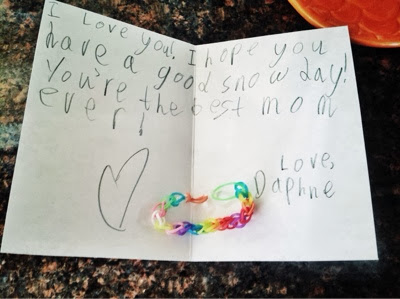 I love you! I hope you
have a good snow day!
You're the best mom
ever!
Love,
Daphne